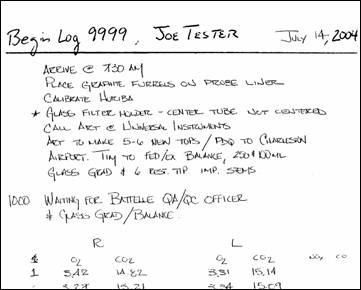 Begin Log 9999, JOE TESTER July 14, 2004
ARRIVE @ 730 AM
PLACE GRAPHITE FURRELS ON PROBE LINER
CALIBRATE HORIBA
* GLASS FILTER HOLDER - CENTER TUBE NOT CENTERED
CALL ART @ UNIVERSAL INSTRUMENTS
ART TO MAKE 5-6 NEW TOPS / PDQ TO CHARLESTON
AIRPORT. TIM TO FED/EX BALANCE, 250 & 100 ML
GLASS GRAD & 6 REST. TIP IMP. STEMS
1000 WAITING FOR BATTELLE QA/QC OFFICER
& GLASS GRAD/BALANCE
R L
O2 CO2 O2 CO2 NOX CO
1 3.42 14.82 3.31 15.14
3.27 15.21 3.34 15.09